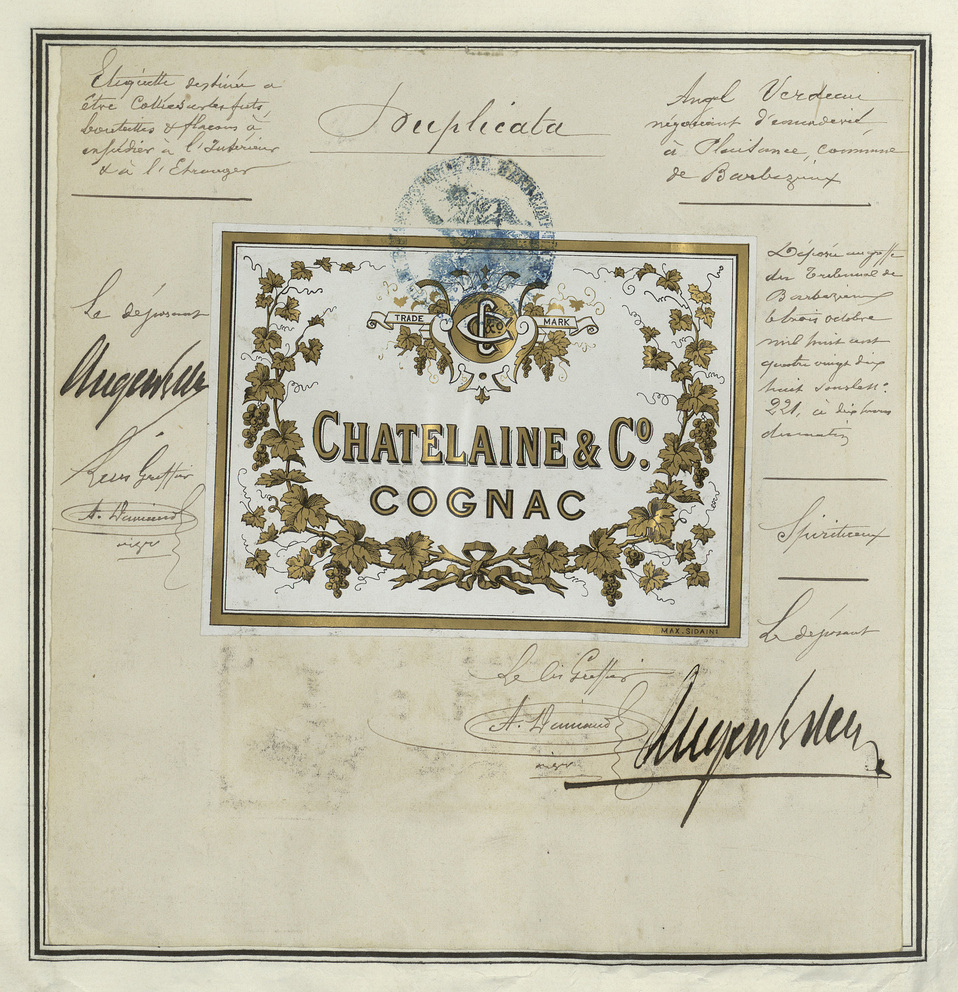 Etiquette destinée à
être collée sur les fûts,
bouteilles & flacons à
expédier à l'Intérieur
& à l'Etranger
Duplicata
Angel Verdeau
négociant d'eau de vie
à Plaisance, commune
de Barbezieux
Déposée au greffe
du Tribunal de
Barbezieux
le trois octobre
mil huit cent
quatre vingt dix
huit sous le n°
221, à dix heures
du matin
Spiritueux
Le déposant
Le déposant
Greffier
TRADE MARK
C & Co
CHATELAINE & Co.
COGNAC
MAX. SIDAINE
Le Greffier